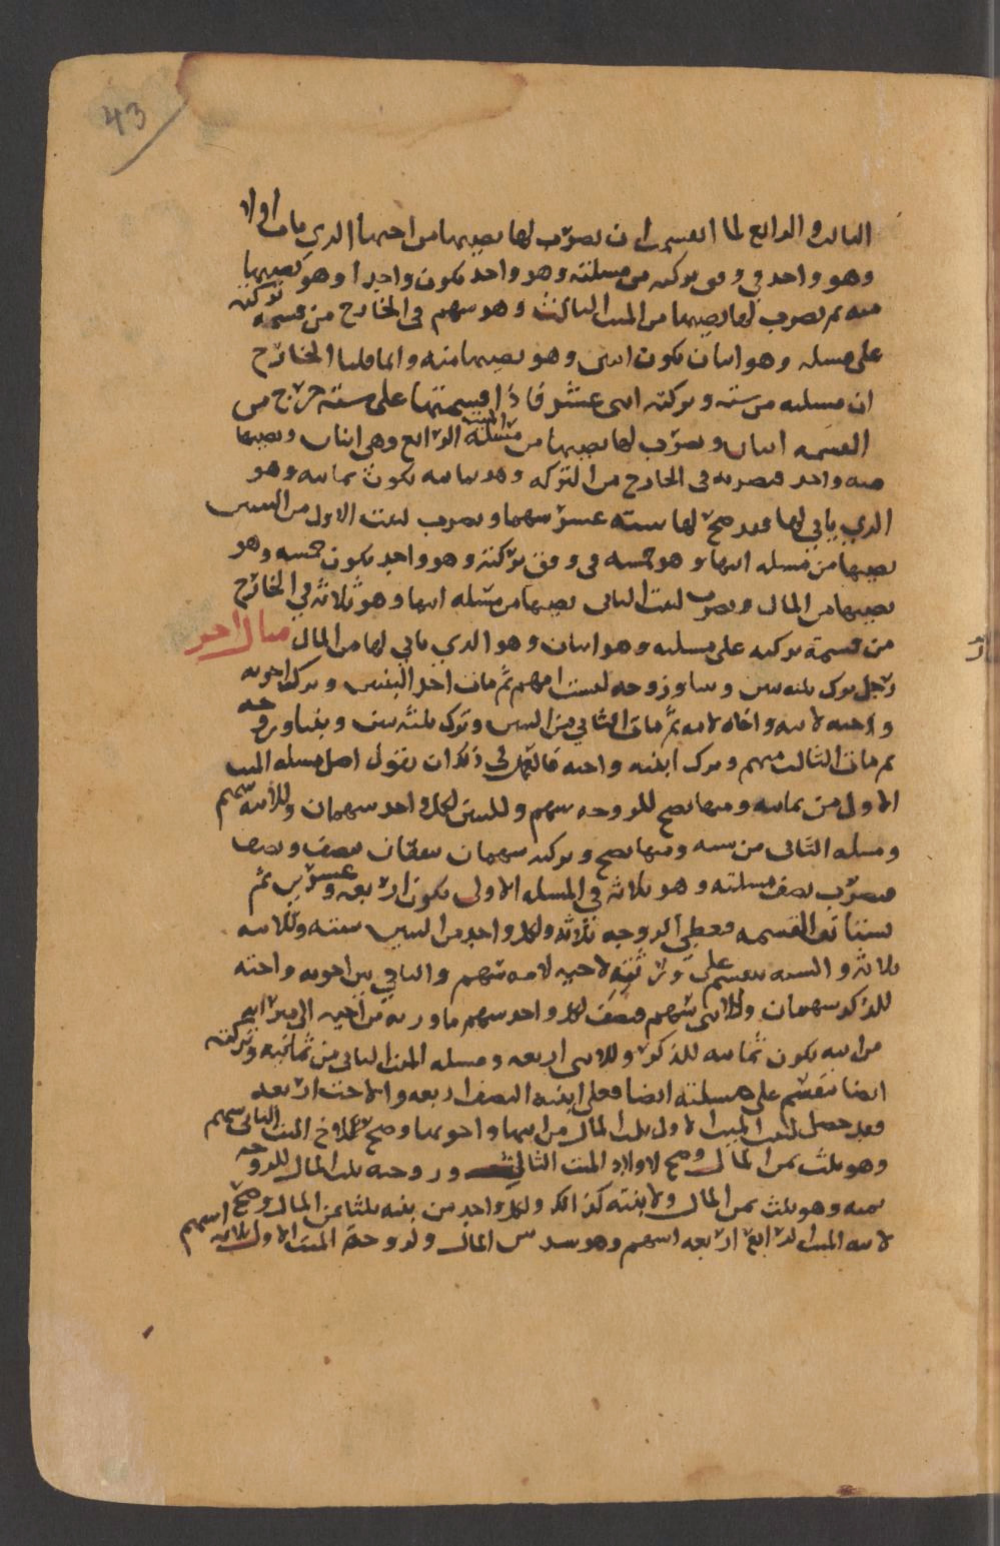 43
الثالث والرابع لما انقسمت ان تضرب لها نصيبها من اختها الذي مات اولا
وهو واحد في وفق تركته من مسلته وهو واحد يكون واحدا وهو نصيبها
منه ثم تضرب لها نصيبها من الميت الثالث وهو سهم في الخارج من قسمة تركته
على مسلته وهو اثنان يكون اثنين وهو نصيبها منه وانما قلنا الخارج
ان مسلته من ستة وتركته اثنى عشر فاذا قسمتها على ستة خرج من
القسمة اثنان وتضرب لها نصيبها من مسلة الميت الرابع وهي اثنان ونصيبها
منه واحد فتضربه في الخارج من التركه وهو ثمانيه يكون ثمانيه وهو
الذي ياتي لها فقد صح لها ستة عشر سهما وتضرب لبنت الاول من البنتين
نصيبها من مسله ابيها وهو خمسه في وفق تركته وهو واحد يكون خمسه وهو
نصيبها من المال وتضرب لبنت الثاني نصيبها من مسله ابيها وهو ثلاثة في الخارج
من قسمة تركته على مسلته وهو اثنان وهو الذي ياتي لها من المال مثال اخر
رجل ترك ثلثه بنين وبنتا وزوجه ليست امهم ثم مات احد البنين وترك اخويه
واخته لابيه واخاه لامه ثم مات الثاني من البنين وترك ثلثه بنين وبنتا وزوجه
ثم مات الثالث منهم وترك ابنته واخته فالعمل في ذلك ان تقول اصل مسله الميت
الاول من ثمانيه ومنها تصح للزوجه سهم وللبنين لكل واحد سهمان وللابنه سهم
ومسله الثاني من سته ومنها تصح وتركته سهمان يتفقان بنصف ونصف
فتضرب نصف مسلته وهو ثلاثة في المسله الاولى يكون اربعه وعشرين ثم
تستانف القسمه فتعطي الزوجه ثلاثة ولكل واحد من البنين سته وللابنه
ثلاثة والسته تنقسم على ورثته لاخيه لامه سهم والباقي بين اخويه واخته
للذكر سهمان وللانثى سهم فتضف لكل واحد سهم ما ورثه من اخيه الى ميراثه
من ابيه يكون ثمانيه للذكر وللانثى اربعه ومسله الميت الثاني من ثمانيه وتركته
ايضا تنقسم على مسلته ايضا فعلى ابنته النصف اربعه والاخت اربعه
فقد حصل لبنت الميت الاول ثلث المال من ابيها واخوتها وصح للاخ الميت الثاني سهم
وهو ثلث ثمن المال وصح لاولاد الميت الثالث وزوجته ثلث المال للزوجه
ثمنه وهو ثلث ثمن المال ولابنته كذلك ولكل واحد من بنيه ثلثا ثمن المال وصح
لابنه الميت الرابع اربعه اسهم وهو سدس المال ولزوجة الميت الاول ثلاثه اسهم